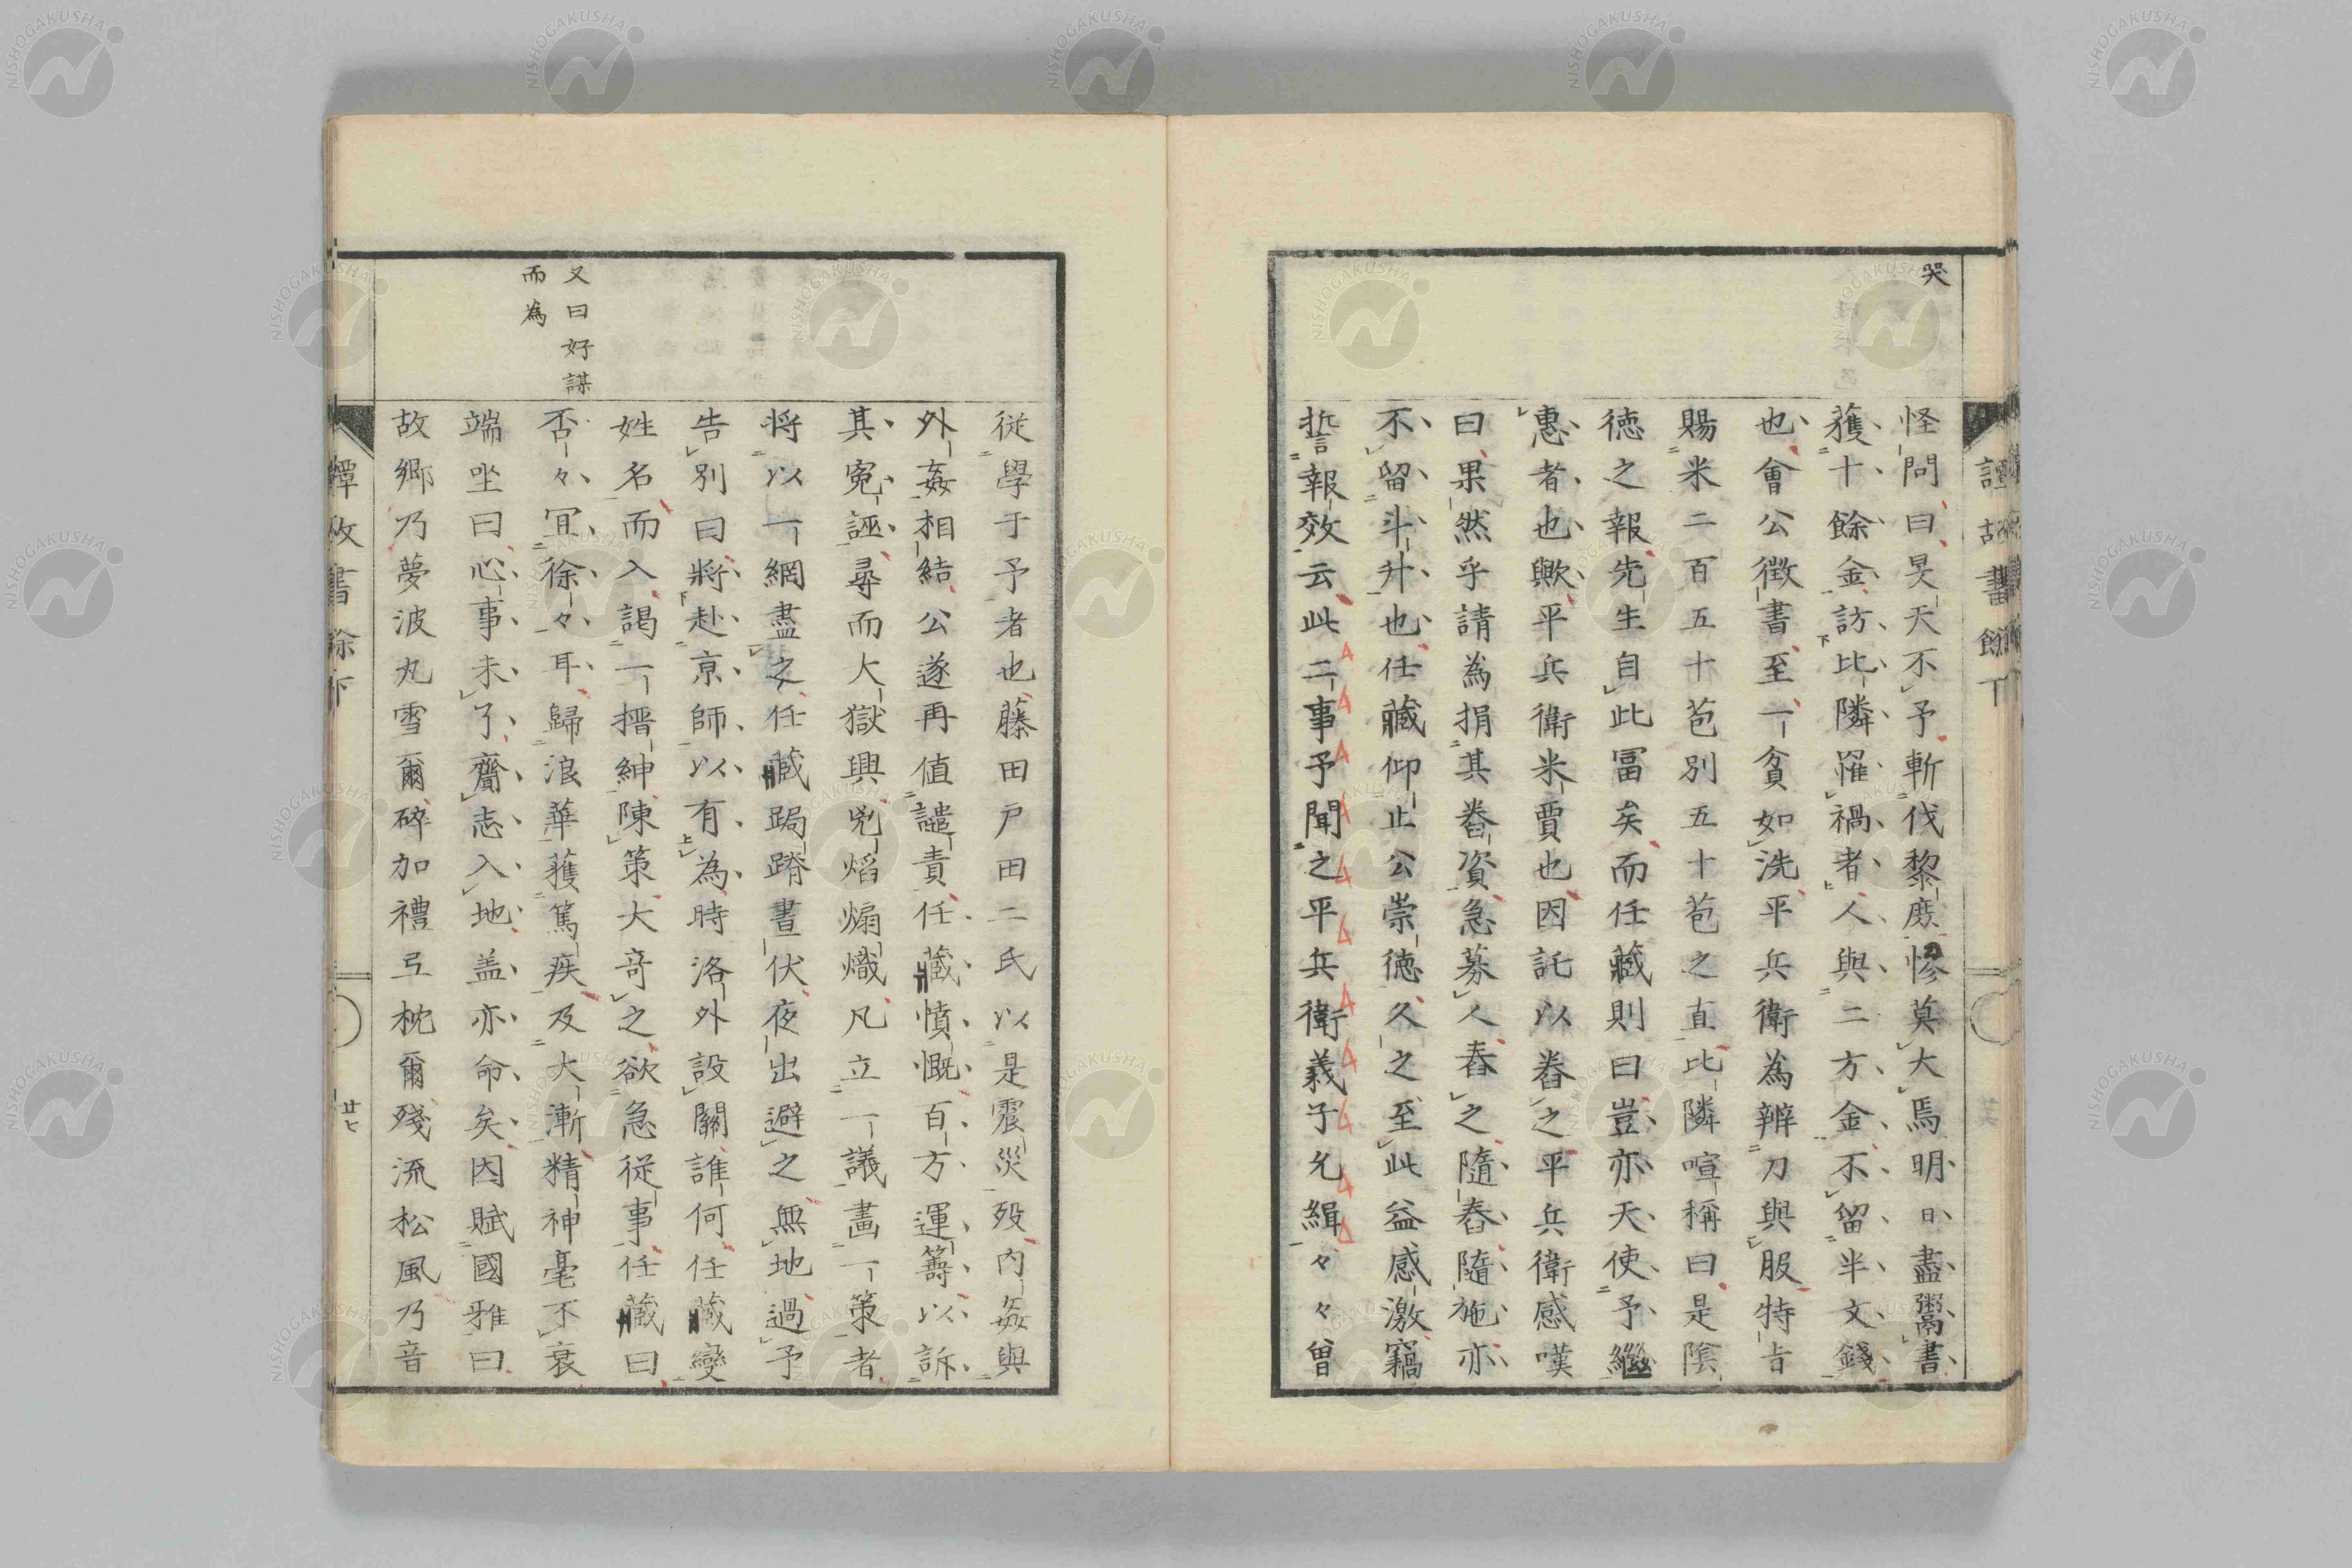 哭
怪問曰旻天不予斬伐黎庶惨莫大焉明日盡鬻書
獲十餘金訪比隣罹禍者人與二方金不留半文錢
也會公徴書至一貧如洗平兵衛為辨刀與服特旨
賜米二百五十苞別五十苞之直比隣喧稱曰是陰
徳之報先生自此冨矣而任蔵則曰豈亦天使予繼
惠者也歟平兵衛米賈也因託以舂之平兵衛感嘆
曰果然乎請為捐其舂資急募人舂之隨舂隨施亦
不留斗升也任蔵仰止公崇徳久之至此益感激竊
誓報效云此二事予聞之平兵衛義子允緝々々曾
從學于予者也藤田戸田二氏以是震災歿内姦與
外姦相結公遂再値譴責任蔵憤慨百方運籌以訴
其寃誣尋而大獄興兇焰煽熾凡立一議畫一策者
将以一網盡之任蔵跼蹐晝伏夜出避之無地過予
告別曰將赴京師以有為時洛外設關誰何任蔵變
姓名而入謁一搢紳陳策大奇之欲急從事任蔵曰
又曰好謀
而為
否々冝徐々耳歸浪華獲篤疾及大漸精神毫不衰
端坐曰心事未了齎志入地盖亦命矣因賦國雅曰
故郷乃夢波丸雪爾碎加禮弖枕爾殘流松風乃音
廿七